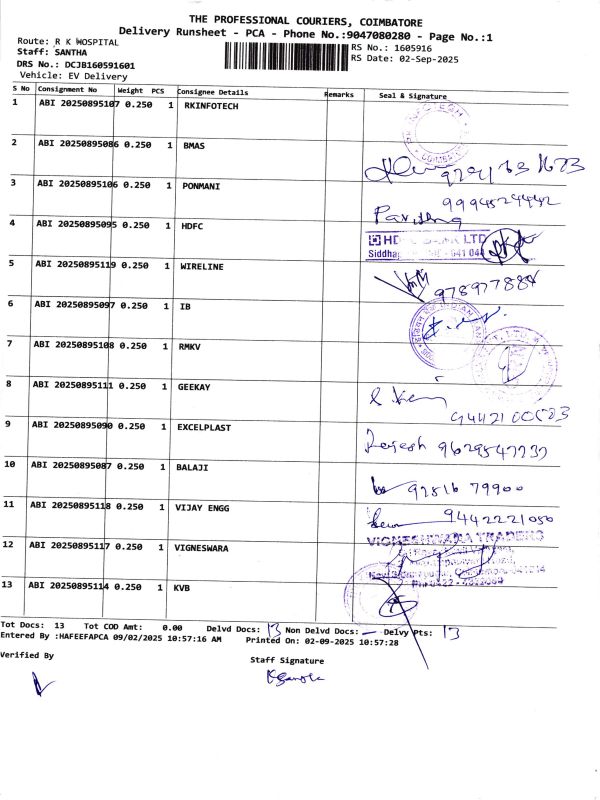 THE PROFESSIONAL COURIERS, COIMBATORE
Delivery Runsheet - PCA - Phone No.:9047080280 - Page No.:1
Route: R K HOSPITAL
Staff: SANTHA
DRS No.: DCJB160591601
Vehicle: EV Delivery
RS No.: 1605916
RS Date: 02-Sep-2025
S No Consignment No Weight PCS Consignee Details Remarks Seal & Signature
1 ABI 20250895107 0.250 1 RKINFOTECH
2 ABI 20250895086 0.250 1 BMAS
3 ABI 20250895106 0.250 1 PONMANI 9994524442
4 ABI 20250895095 0.250 1 HDFC
5 ABI 20250895119 0.250 1 WIRELINE
6 ABI 20250895097 0.250 1 IB
7 ABI 20250895108 0.250 1 RMKV
8 ABI 20250895111 0.250 1 GEEKAY
9 ABI 20250895090 0.250 1 EXCELPLAST
10 ABI 20250895087 0.250 1 BALAJI 92816 79900
11 ABI 20250895118 0.250 1 VIJAY ENGG 9442221050
VIGNESHWARA TRADERS
12 ABI 20250895117 0.250 1 VIGNESWARA
13 ABI 20250895114 0.250 1 KVB
Tot Docs: 13 Tot COD Amt: 0.00 Delvd Docs: 13 Non Delvd Docs: — Delvy Pts: 13
Entered By :HAFEEFAPCA 09/02/2025 10:57:16 AM Printed On: 02-09-2025 10:57:28
Verified By
Staff Signature